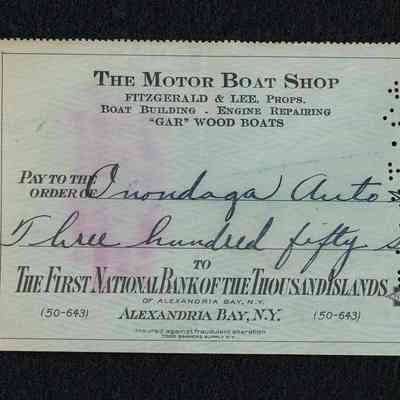 THE MOTOR BOAT SHOP
FITZGERALD & LEE, PROPS.
BOAT BUILDING - ENGINE REPAIRING
"GAR" WOOD BOATS
PAY TO THE
ORDER OF Onondaga Auto
Three hundred fifty s
TO
THE FIRST NATIONAL BANK OF THE THOUSAND ISLANDS
OF ALEXANDRIA BAY, N.Y.
(50-643) ALEXANDRIA BAY, N.Y. (50-643)
Insured against fraudulent alteration